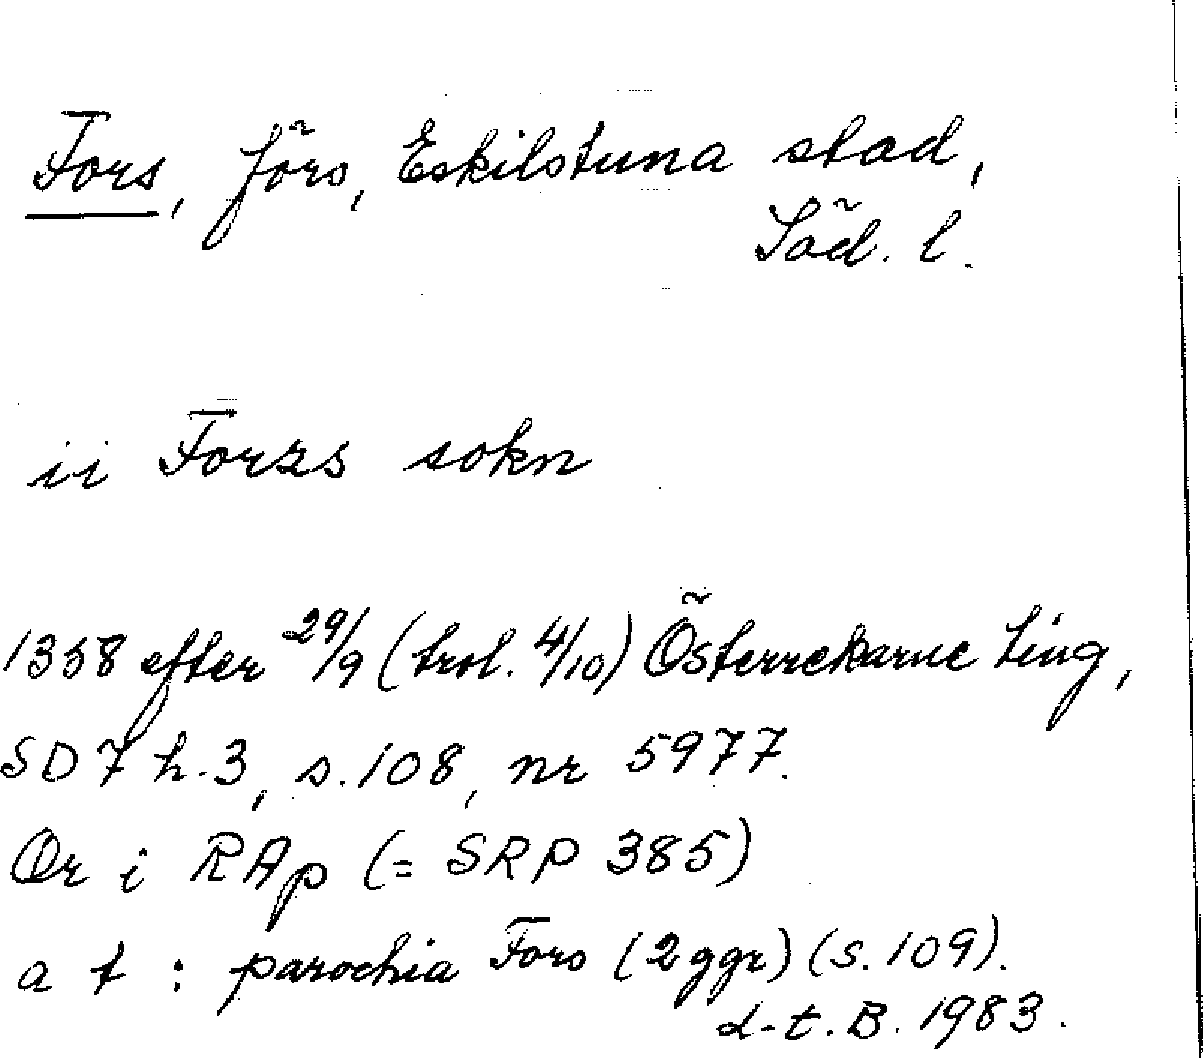 Fors, förs, Eskilstuna stad,
Söd. l.
ii Forzs sokn
1358 efter 29/9 (trol. 4/10) Österrekarne ting,
SD 7 h. 3, s. 108, nr 5977.
Or i RAp (= SRP 385)
a t : parochia Fors (2 ggr) (s. 109).
d-t. B. 1983.